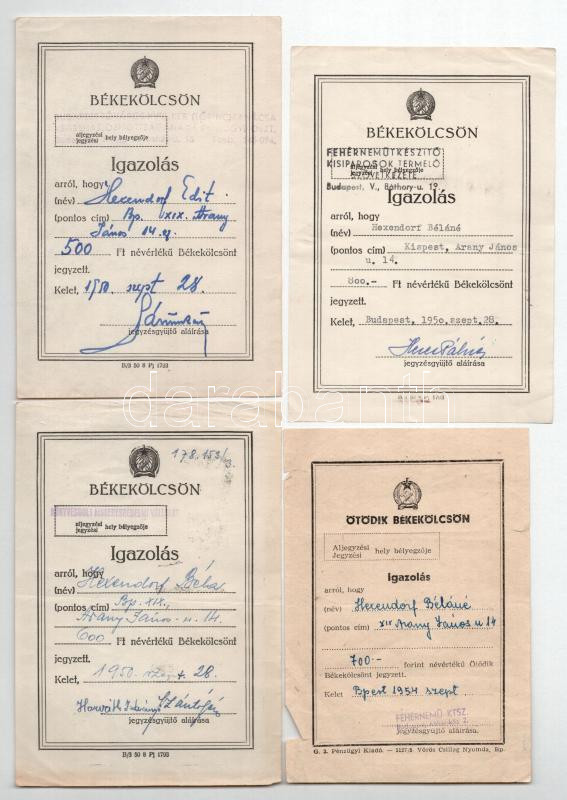 BÉKEKÖLCSÖN
aljegyzési
jegyzési hely bélyegzője
Igazolás
arról, hogy
(név) Hexendorf Edit.
(pontos cím) Bp. XIX. Arany
János 14.
500 Ft névértékű Békekölcsönt
jegyzett.
Kelet, 1950. szept 28.
jegyzésgyüjtő aláírása
B/3 50 8 Pj 1793
BÉKEKÖLCSÖN
FEHÉRNEMŰTKÉSZÍTŐ
KISIPAROSOK TERMELŐ
SZÖVETKEZETE
Budapest, V., Báthory-u. 19
Igazolás
arról, hogy
(név) Hexendorf Béláné
(pontos cím) Kispest, Arany János
u. 14.
800.- Ft névértékű Békekölcsönt
jegyzett.
Kelet, Budapest, 1950.szept.28.
jegyzésgyüjtő aláírása
178.153/3.
BÉKEKÖLCSÖN
aljegyzési
jegyzési hely bélyegzője
Igazolás
arról, hogy
(név) Hexendorf Béla
(pontos cím) Bp. XIX.,
Arany János-u. 14
600 Ft névértékű Békekölcsönt
jegyzett.
Kelet, 1950. szept. 28.
Horváth
jegyzésgyüjtő aláírása
B/3 50 8 Pj 1793
ÖTÖDIK BÉKEKÖLCSÖN
Aljegyzési
Jegyzési hely bélyegzője
Igazolás
arról, hogy
(név) Hexendorf Béláné
(pontos cím) XIX Arany János u 14
700.- forint névértékű Ötödik
Békekölcsönt jegyzett.
Kelet Bpest 1954 szept
FEHÉRNEMŰ KTSZ.
jegyzésgyüjtő aláírása.
G. 3. Pénzügyi Kiadó. — 5127/3 Vörös Csillag Nyomda, Bp.
darabanth